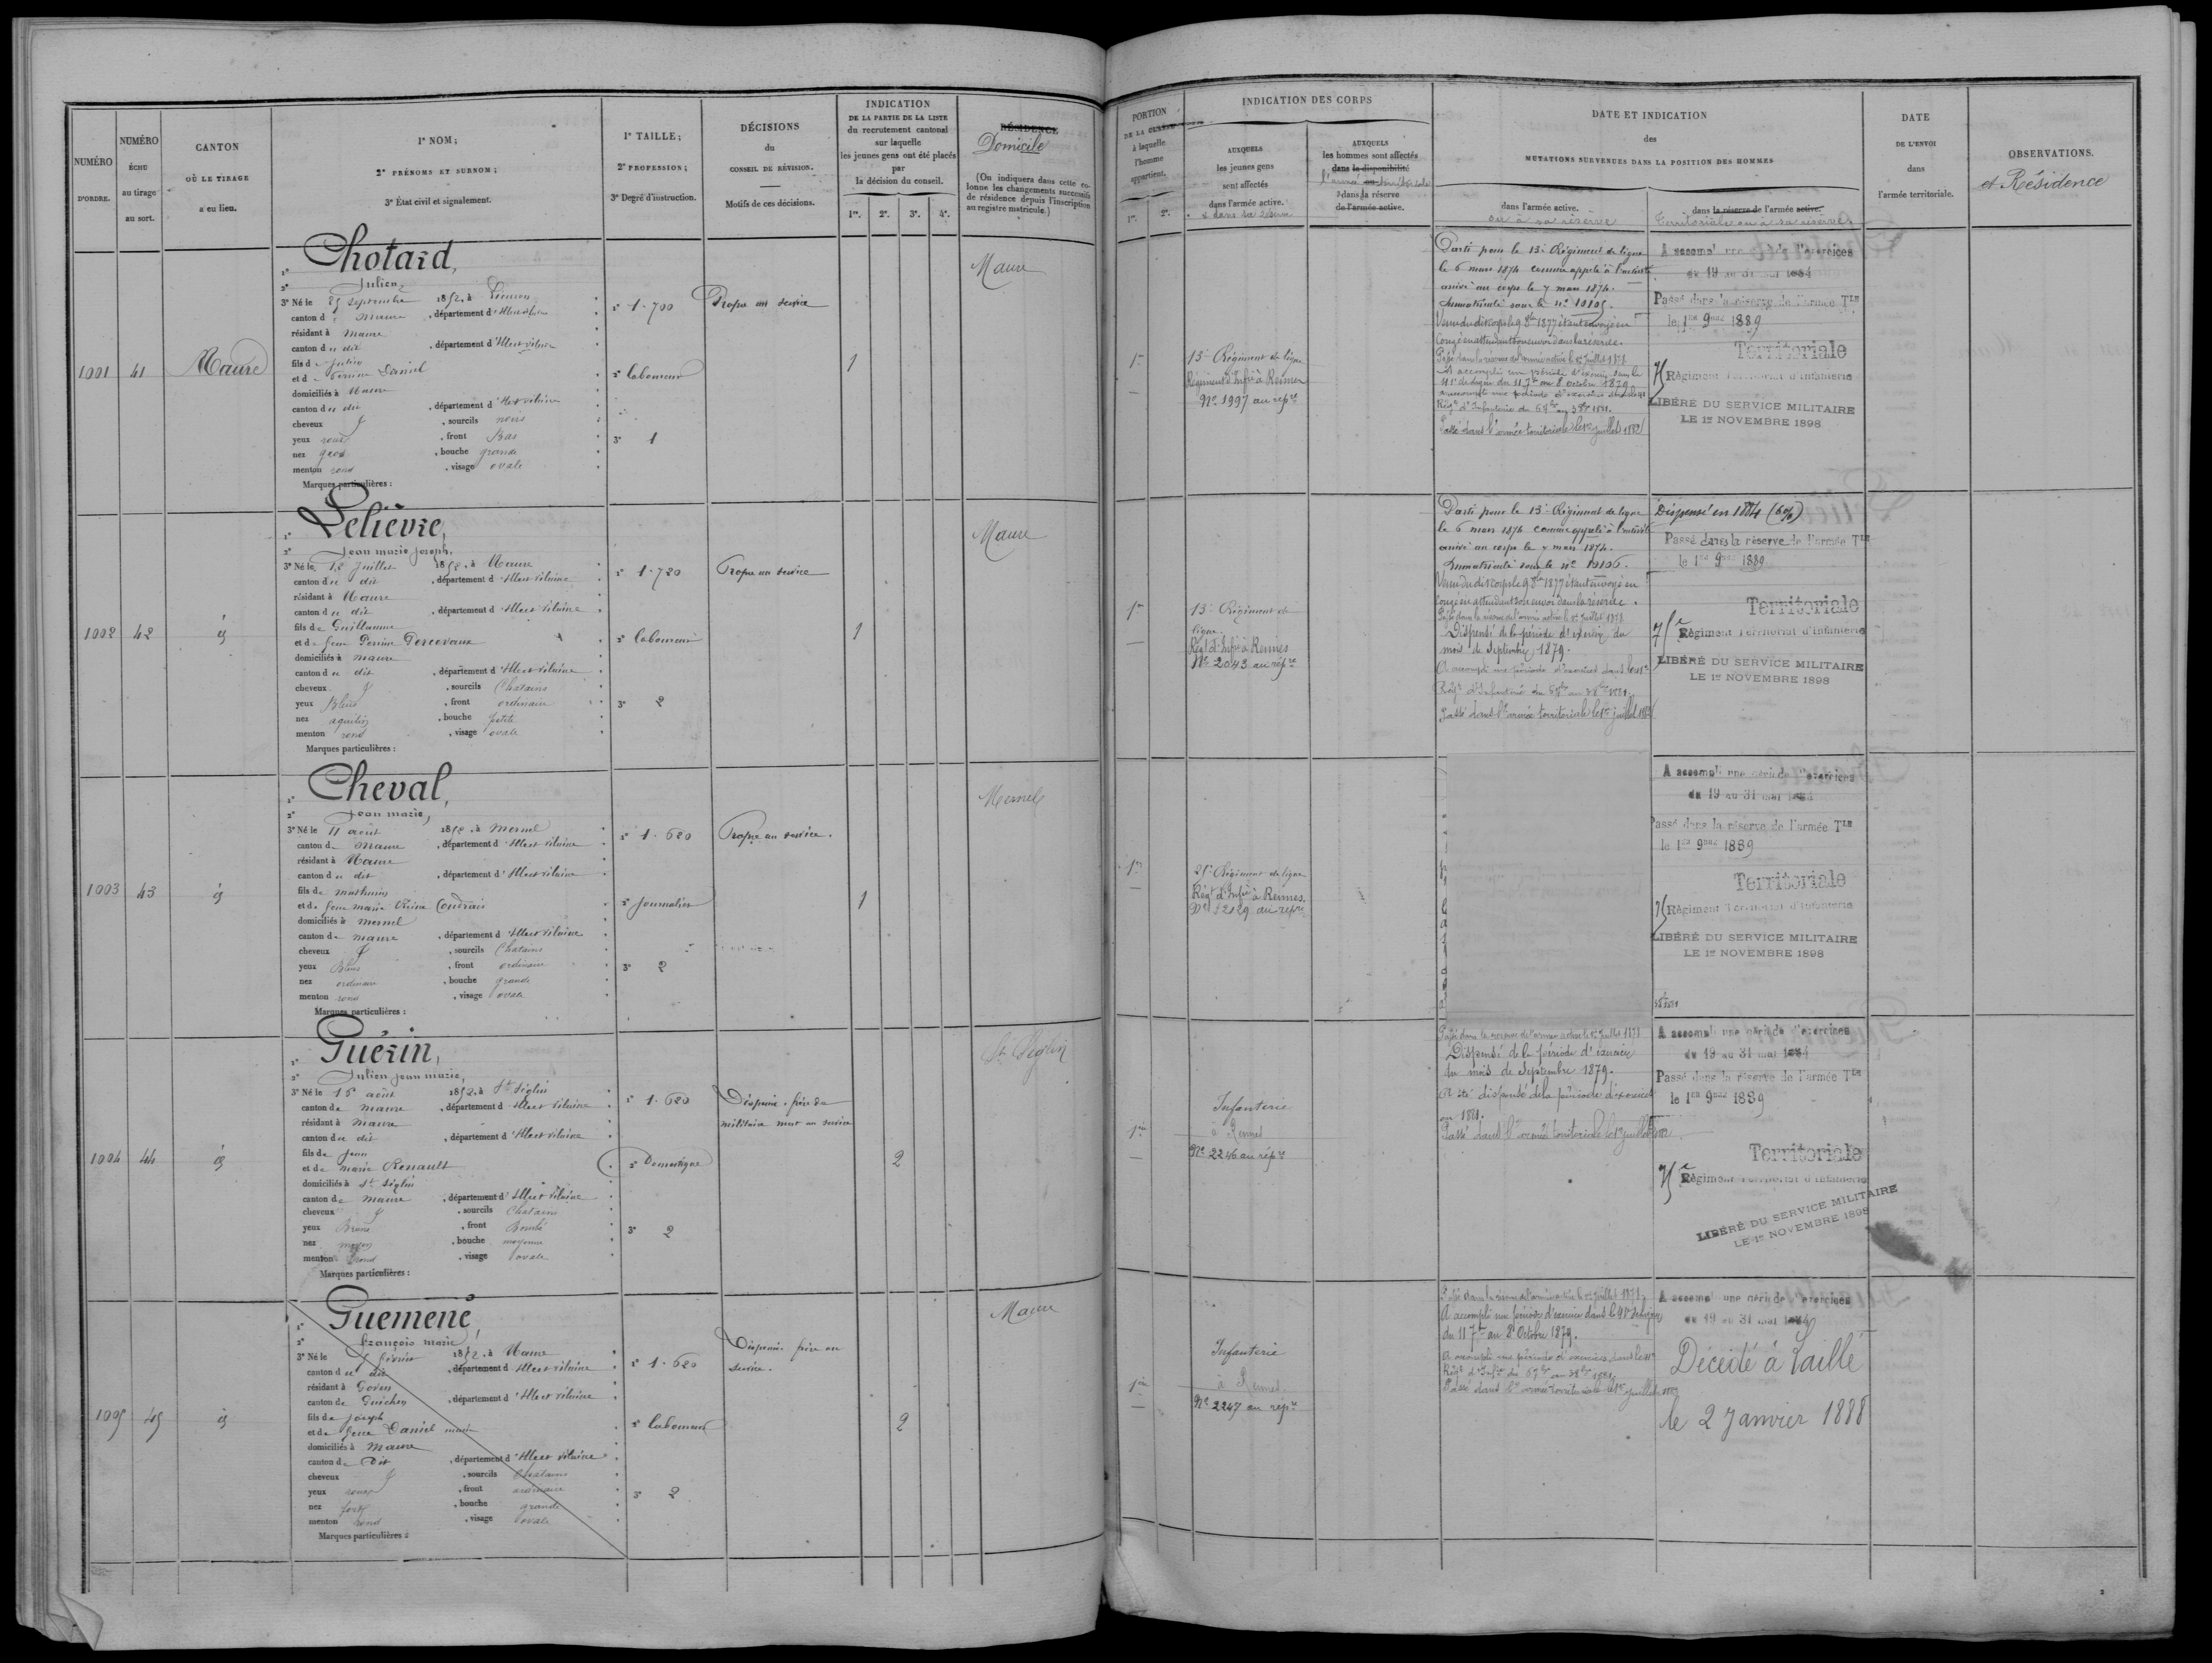 NUMÉRO
D'ORDRE.
NUMÉRO
ÉCHU
au tirage
au sort.
CANTON
OÙ LE TIRAGE
a eu lieu.
1° NOM;
2° PRÉNOMS ET SURNOM;
3° État civil et signalement.
1° TAILLE;
2° PROFESSION;
3° Degré d'instruction.
DÉCISIONS
du
CONSEIL DE RÉVISION.
Motifs de ces décisions.
INDICATION
DE LA PARTIE DE LA LISTE
du recrutement cantonal
sur laquelle
les jeunes gens ont été placés
par
la décision du conseil.
1re. 2e. 3e. 4e.
RÉSIDENCE
Domicile
(On indiquera dans cette co-
lonne les changements successifs
de résidence depuis l'inscription
au registre matricule.)
PORTION
à laquelle
l'homme
appartient.
1re. 2e.
INDICATION DES CORPS
AUXQUELS
les jeunes gens
sont affectés
dans l'armée active.
AUXQUELS
les hommes sont affectés
dans la disponibilité
dans la réserve
de l'armée active.
DATE ET INDICATION
des
MUTATIONS SURVENUES DANS LA POSITION DES HOMMES
dans l'armée active.
ou à sa réserve
dans la réserve de l'armée active.
Territoriale ou à sa réserve
DATE
DE L'ENVOI
dans
l'armée territoriale.
OBSERVATIONS.
et Résidence
1001 41 Maure
1° Chotard,
2° Julien,
3° Né le 25 septembre 1852, à
canton d Maure, département d'Ille et Vilaine
résidant à Maure
canton d u dit, département d'Ille et Vilaine
fils de Julien
et de Perrine Daniel
domiciliés à Maure
canton d u dit, département d'Ille et Vilaine
cheveux, sourcils noirs
yeux roux, front Bas
nez gros, bouche grande
menton rond, visage ovale
Marques particulières :
1° 1.700
2° laboureur
3° 1
Propre au service
1
Maure
1re
13e Régiment de ligne
Régiment d'Infie à Rennes
No 1997 au répre
Parti pour le 13e Régiment de ligne
le 6 mars 1874 comme appelé à l'activité
arrivé au corps le 7 mars 1874.
Immatriculé sous le no 10105.
Venu du dit corps le 9 8bre 1877 étant envoyé en
congé en attendant son envoi dans la réserve.
Passé dans la réserve de l'armée active le 1er Juillet 1878
A accompli une période d'exercices dans le
41e de ligne du 11 7bre au 8 octobre 1879
Passé dans l'armée territoriale le 1er juillet 1882
A accompli une période d'exercices
du 19 au 31 mai 1884
Passé dans la réserve de l'armée Tle
le 1er 9bre 1889
Territoriale
75 Régiment Territorial d'Infanterie
LIBÉRÉ DU SERVICE MILITAIRE
LE 1er NOVEMBRE 1898
1002 42 id
1° Lelièvre,
2° Jean marie joseph,
3° Né le 12 juillet 1852, à Maure
canton d u dit, département d'Ille et Vilaine
résidant à Maure
canton d u dit, département d'Ille et Vilaine
fils de Guillaume
et de feue Perrine Percevaux
domiciliés à Maure
canton d u dit, département d'Ille et Vilaine
cheveux, sourcils Chatains
yeux Bleus, front ordinaire
nez aquilin, bouche petite
menton rond, visage ovale
Marques particulières :
1° 1.720
2° laboureur
3° 2
Propre au service
1
Maure
1re
13e Régiment de
ligne.
Régt d'Infie à Rennes
No 2043 au répre
Parti pour le 13e Régiment de ligne
le 6 mars 1874 comme appelé à l'activité
arrivé au corps le 7 mars 1874.
Immatriculé sous le no 10106.
Venu du dit corps le 9 8bre 1877 étant envoyé en
congé en attendant son envoi dans la réserve.
Passé dans la réserve de l'armée active le 1er Juillet 1878
Dispensé de la période d'exercice du
mois de Septembre 1879.
A accompli une période d'exercices dans le 41e
Régt d'Infanterie du 6 7bre au 3 8bre 1881.
Passé dans l'armée territoriale le 1er juillet 1882
Dispensé en 1884 (6%)
Passé dans la réserve de l'armée Tle
le 1er 9bre 1889
Territoriale
75e Régiment Territorial d'Infanterie
LIBÉRÉ DU SERVICE MILITAIRE
LE 1er NOVEMBRE 1898
1003 43 id
1° Cheval,
2° Jean marie,
3° Né le 11 août 1852, à Mernel
canton de Maure, département d'Ille et Vilaine
résidant à Maure
canton d u dit, département d'Ille et Vilaine
fils de mathurin
et de feue marie Reine Coudrais
domiciliés à Mernel
canton de maure, département d'Ille et Vilaine
cheveux, sourcils Chatains
yeux Bleus, front ordinaire
nez ordinaire, bouche grande
menton rond, visage ovale
Marques particulières :
1° 1.620
2° Journalier
3° 2
Propre au service.
1
Mernel
1re
25e Régiment de ligne
Régt d'Infie à Rennes.
No 2129 au répre
A accompli une période d'exercices
du 19 au 31 mai 1884
Passé dans la réserve de l'armée Tle
le 1er 9bre 1889
Territoriale
75 Régiment Territorial d'Infanterie
LIBÉRÉ DU SERVICE MILITAIRE
LE 1er NOVEMBRE 1898
1004 44 id
1° Guérin,
2° Julien jean marie,
3° Né le 15 août 1852, à St Séglin
canton de Maure, département d'Ille et Vilaine
résidant à Maure
canton du dit, département d'Ille et Vilaine
fils de Jean
et de marie Renault
domiciliés à St Séglin
canton de Maure, département d'Ille et Vilaine
cheveux, sourcils Chatains
yeux Bruns, front Bombé
nez moyen, bouche moyenne
menton rond, visage ovale
Marques particulières :
1° 1.620
2° Domestique
3° 2
Dispensé. frère de
militaire mort au service
2
St Séglin
1re
Infanterie
à Rennes
No 2246 au répre
Passé dans la réserve de l'armée active le 1er Juillet 1878
Dispensé de la période d'exercice
du mois de Septembre 1879.
A été dispensé de la période d'exercices
en 1881.
Passé dans l'armée territoriale le 1er juillet 1882
A accompli une période d'exercices
du 19 au 31 mai 1884
Passé dans la réserve de l'armée Tle
le 1er 9bre 1889
Territoriale
75e Régiment Territorial d'Infanterie
LIBÉRÉ DU SERVICE MILITAIRE
LE 1er NOVEMBRE 1898
1005 45 id
1° Guemené,
2° François marie
3° Né le 5 février 1852, à Maure
canton du dit, département d'Ille et Vilaine
résidant à Goven
canton de Guichen, département d'Ille et Vilaine
fils de joseph
et de feue Daniel marie
domiciliés à Maure
canton de Dit, département d'Ille et Vilaine
cheveux, sourcils Chatains
yeux roux, front ordinaire
nez fort, bouche grande
menton rond, visage ovale
Marques particulières :
1° 1.620
2° laboureur
3° 2
Dispensé. frère au
service.
2
Maure
1re
Infanterie
à Rennes
No 2247 au répre
Passé dans la réserve de l'armée active le 1er Juillet 1878
A accompli une période d'exercice dans le 41e de ligne
du 11 7bre au 8 Octobre 1879.
A accompli une période d'exercices dans le 41e
Régt d'Infie du 6 7bre au 3 8bre 1881
Passé dans l'armée territoriale le 1er juillet 1882
A accompli une période d'exercices
du 19 au 31 mai 1884
Décédé à Laillé
le 2 Janvier 1888